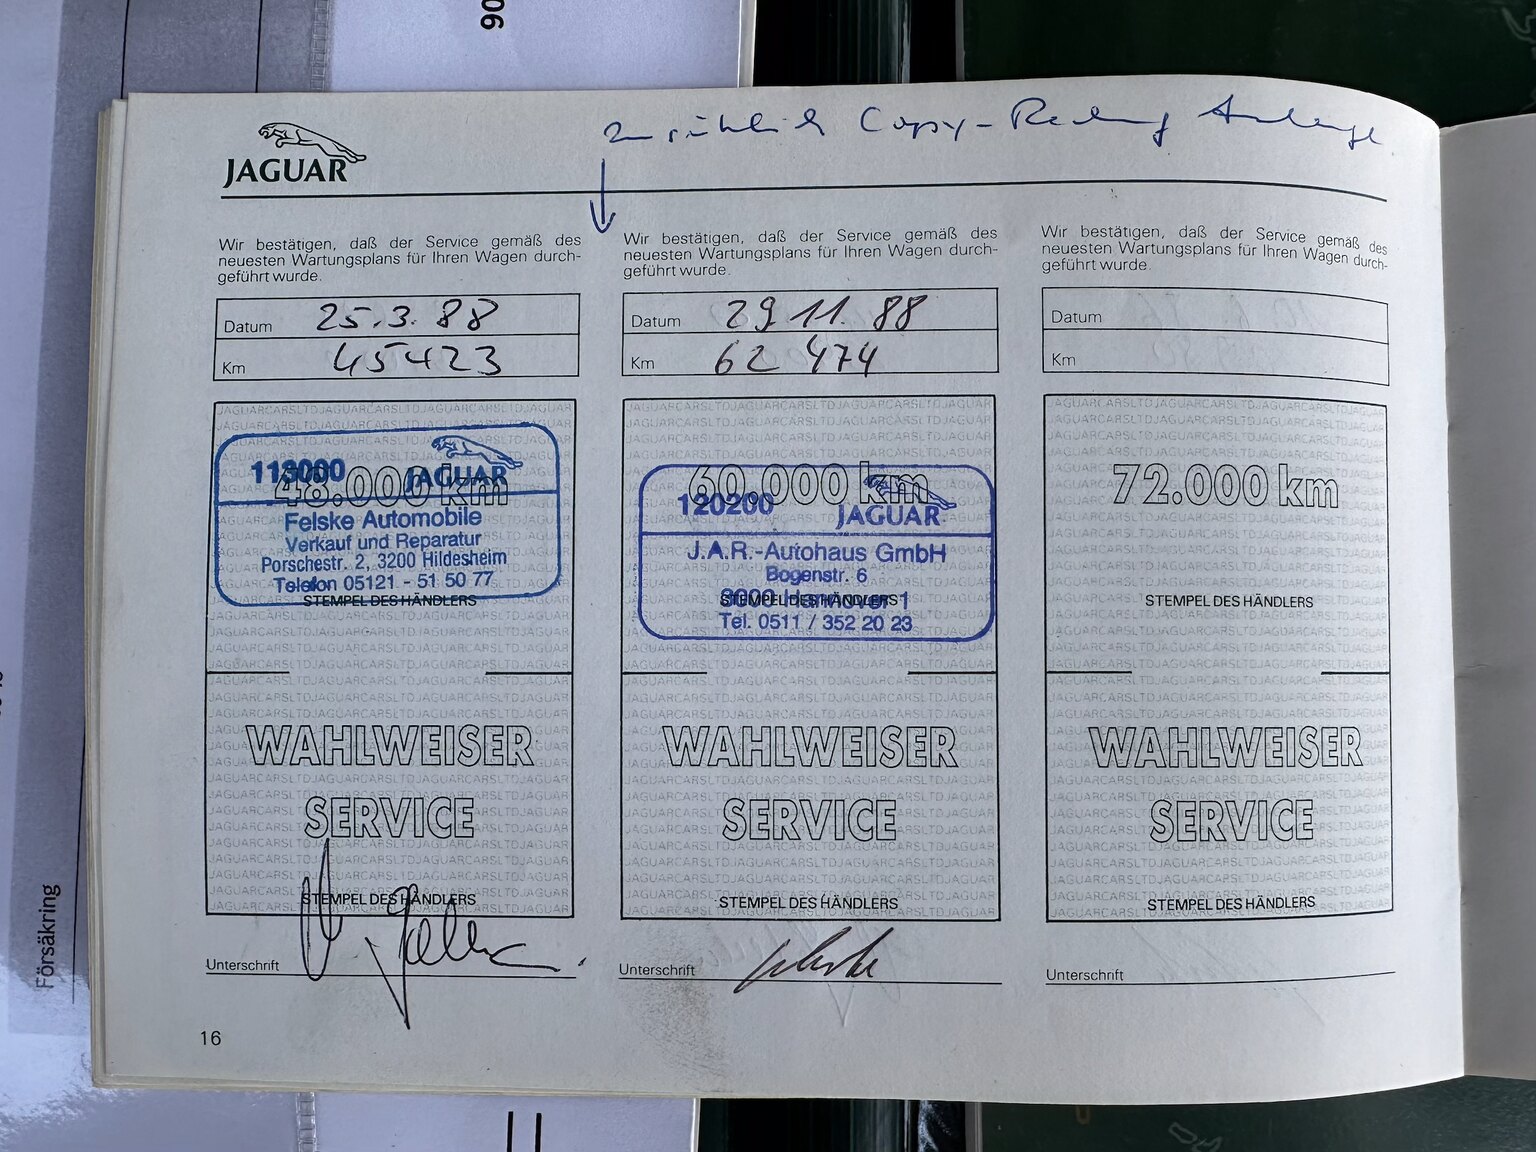 90
JAGUAR
Copy-
Wir bestätigen, daß der Service gemäß des
neuesten Wartungsplans für Ihren Wagen durch-
geführt wurde.
Datum 25.3.88
Km 45423
48.000 km
113000 JAGUAR
Felske Automobile
Verkauf und Reparatur
Porschestr. 2, 3200 Hildesheim
Telefon 05121 - 51 50 77
STEMPEL DES HÄNDLERS
WAHLWEISER
SERVICE
STEMPEL DES HÄNDLERS
Unterschrift
Wir bestätigen, daß der Service gemäß des
neuesten Wartungsplans für Ihren Wagen durch-
geführt wurde.
Datum 29.11.88
Km 62 474
60.000 km
120200 JAGUAR
J.A.R.-Autohaus GmbH
Bogenstr. 6
3000 Hannover 1
Tel. 0511 / 352 20 23
STEMPEL DES HÄNDLERS
WAHLWEISER
SERVICE
STEMPEL DES HÄNDLERS
Unterschrift
Wir bestätigen, daß der Service gemäß des
neuesten Wartungsplans für Ihren Wagen durch-
geführt wurde.
Datum
Km
72.000 km
STEMPEL DES HÄNDLERS
WAHLWEISER
SERVICE
STEMPEL DES HÄNDLERS
Unterschrift
16
Försäkring